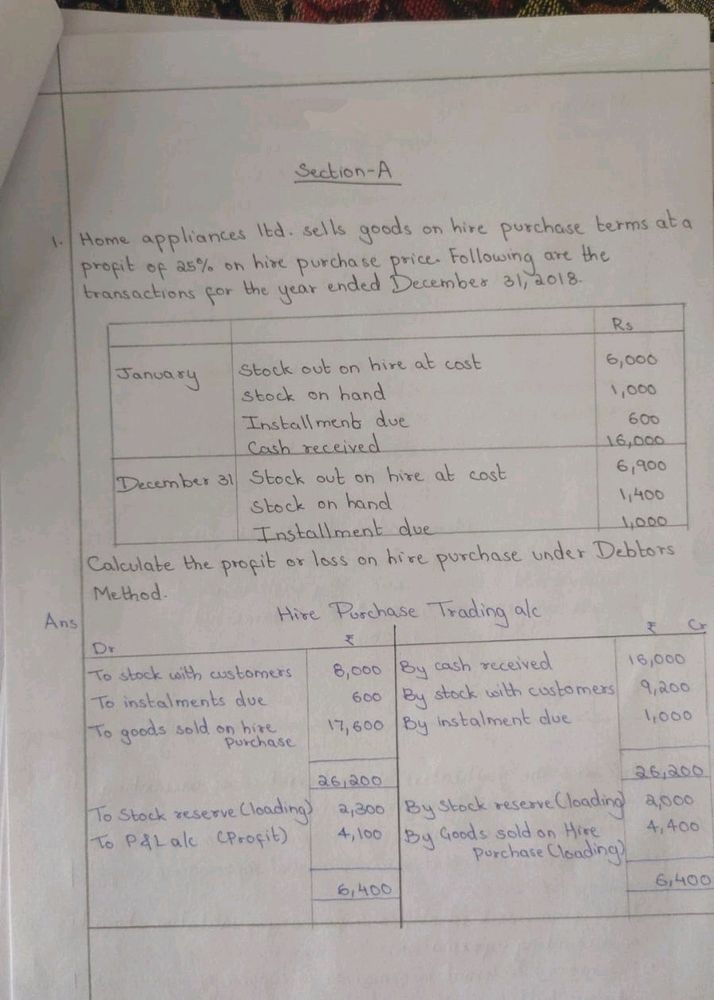 Section-A
1. Home appliances ltd. sells goods on hire purchase terms at a
profit of 25% on hire purchase price. Following are the
transactions for the year ended December 31, 2018.
Rs
January Stock out on hire at cost 6,000
Stock on hand 1,000
Installment due 600
Cash received 16,000
December 31 Stock out on hire at cost 6,900
Stock on hand 1,400
Installment due 1,000
Calculate the profit or loss on hire purchase under Debtors
Method.
Ans Hire Purchase Trading a/c
Dr ₹ ₹ Cr
To stock with customers 8,000 By cash received 16,000
To instalments due 600 By stock with customers 9,200
To goods sold on hire purchase 17,600 By instalment due 1,000
26,200 26,200
To Stock reserve (loading) 2,300 By Stock reserve (loading) 2,000
To P&L a/c (Profit) 4,100 By Goods sold on Hire
Purchase (loading) 4,400
6,400 6,400